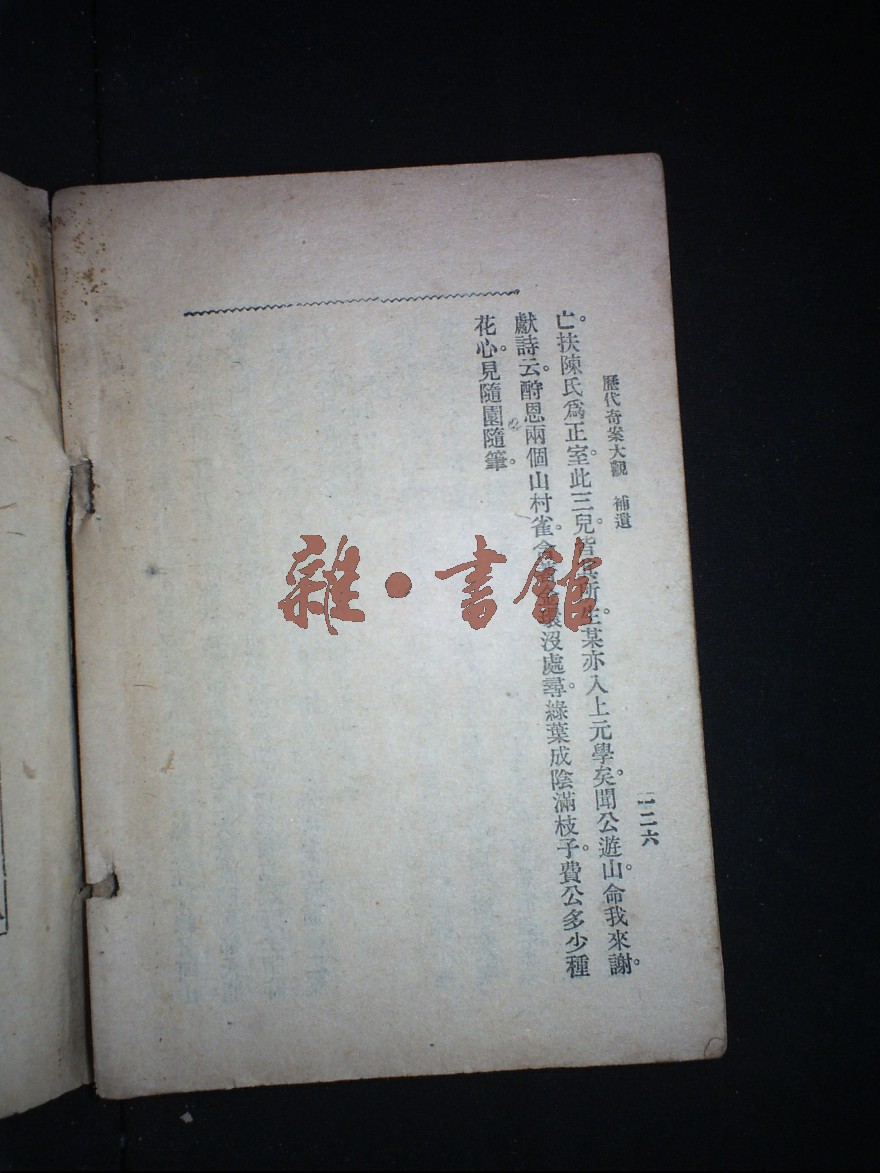 歷代奇案大觀 補遺
一二六
亡。扶陳氏爲正室。此三兒皆 所生。某亦入上元學矣。聞公遊山。命我來謝。
獻詩云。酧恩兩個山村雀。含 沒處尋。綠葉成陰滿枝子。費公多少種
花心。見隨園隨筆。
雜·書館